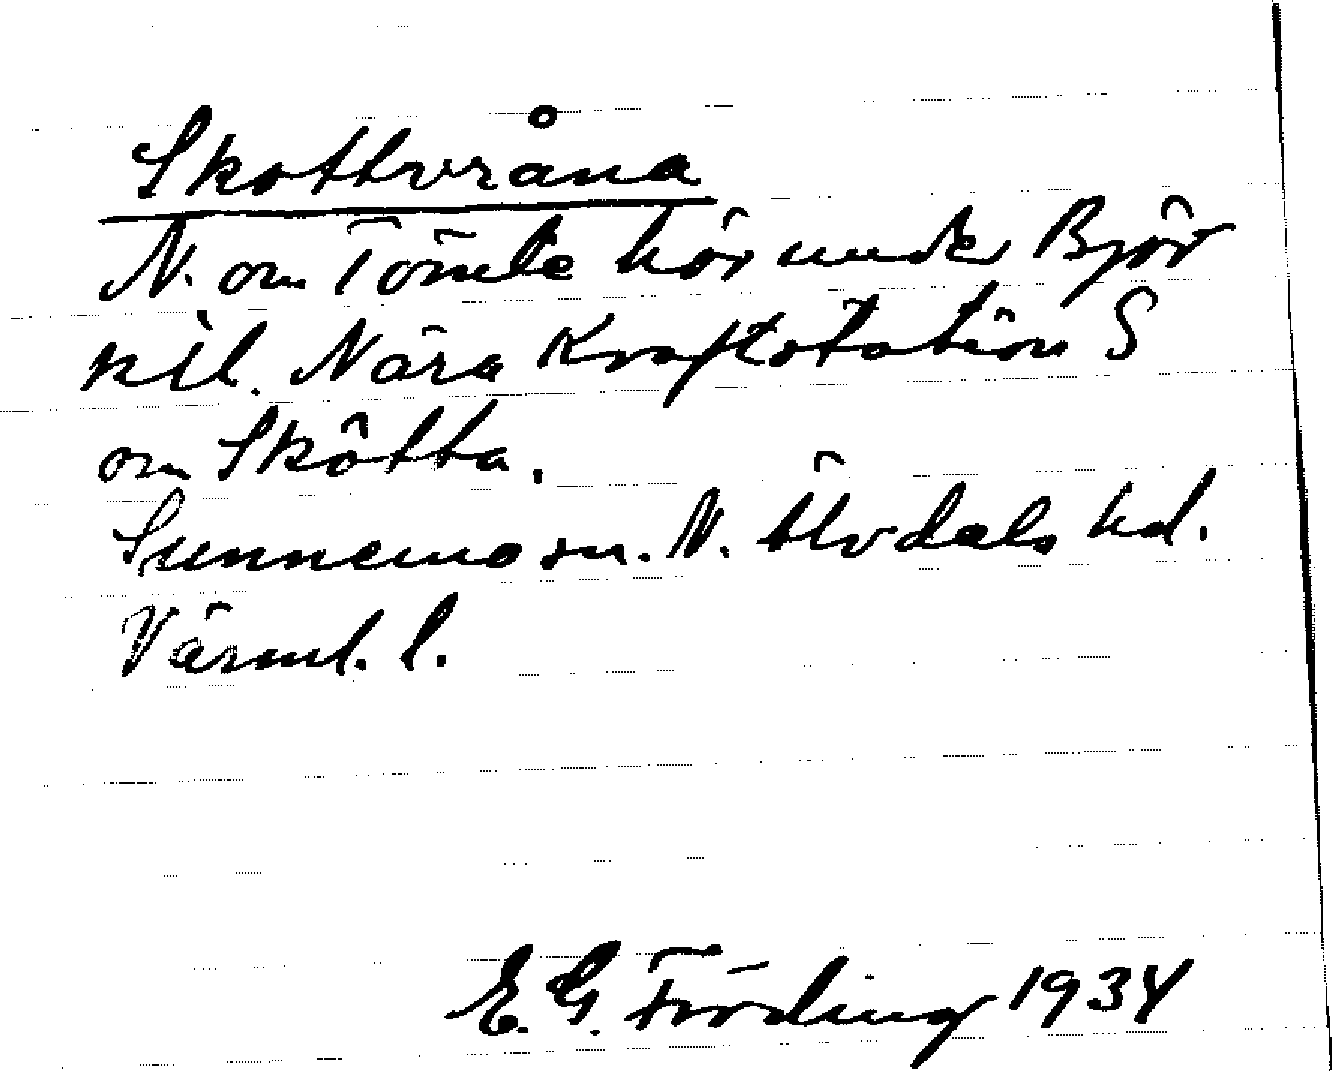 Skottvråna
N. om Tömte hör under Björ
kil. Nära Kraftstation S
om Skötta.
Sunnemo sn. N. Älvdals hd.
Värml. l.
E. G. Färding 1934